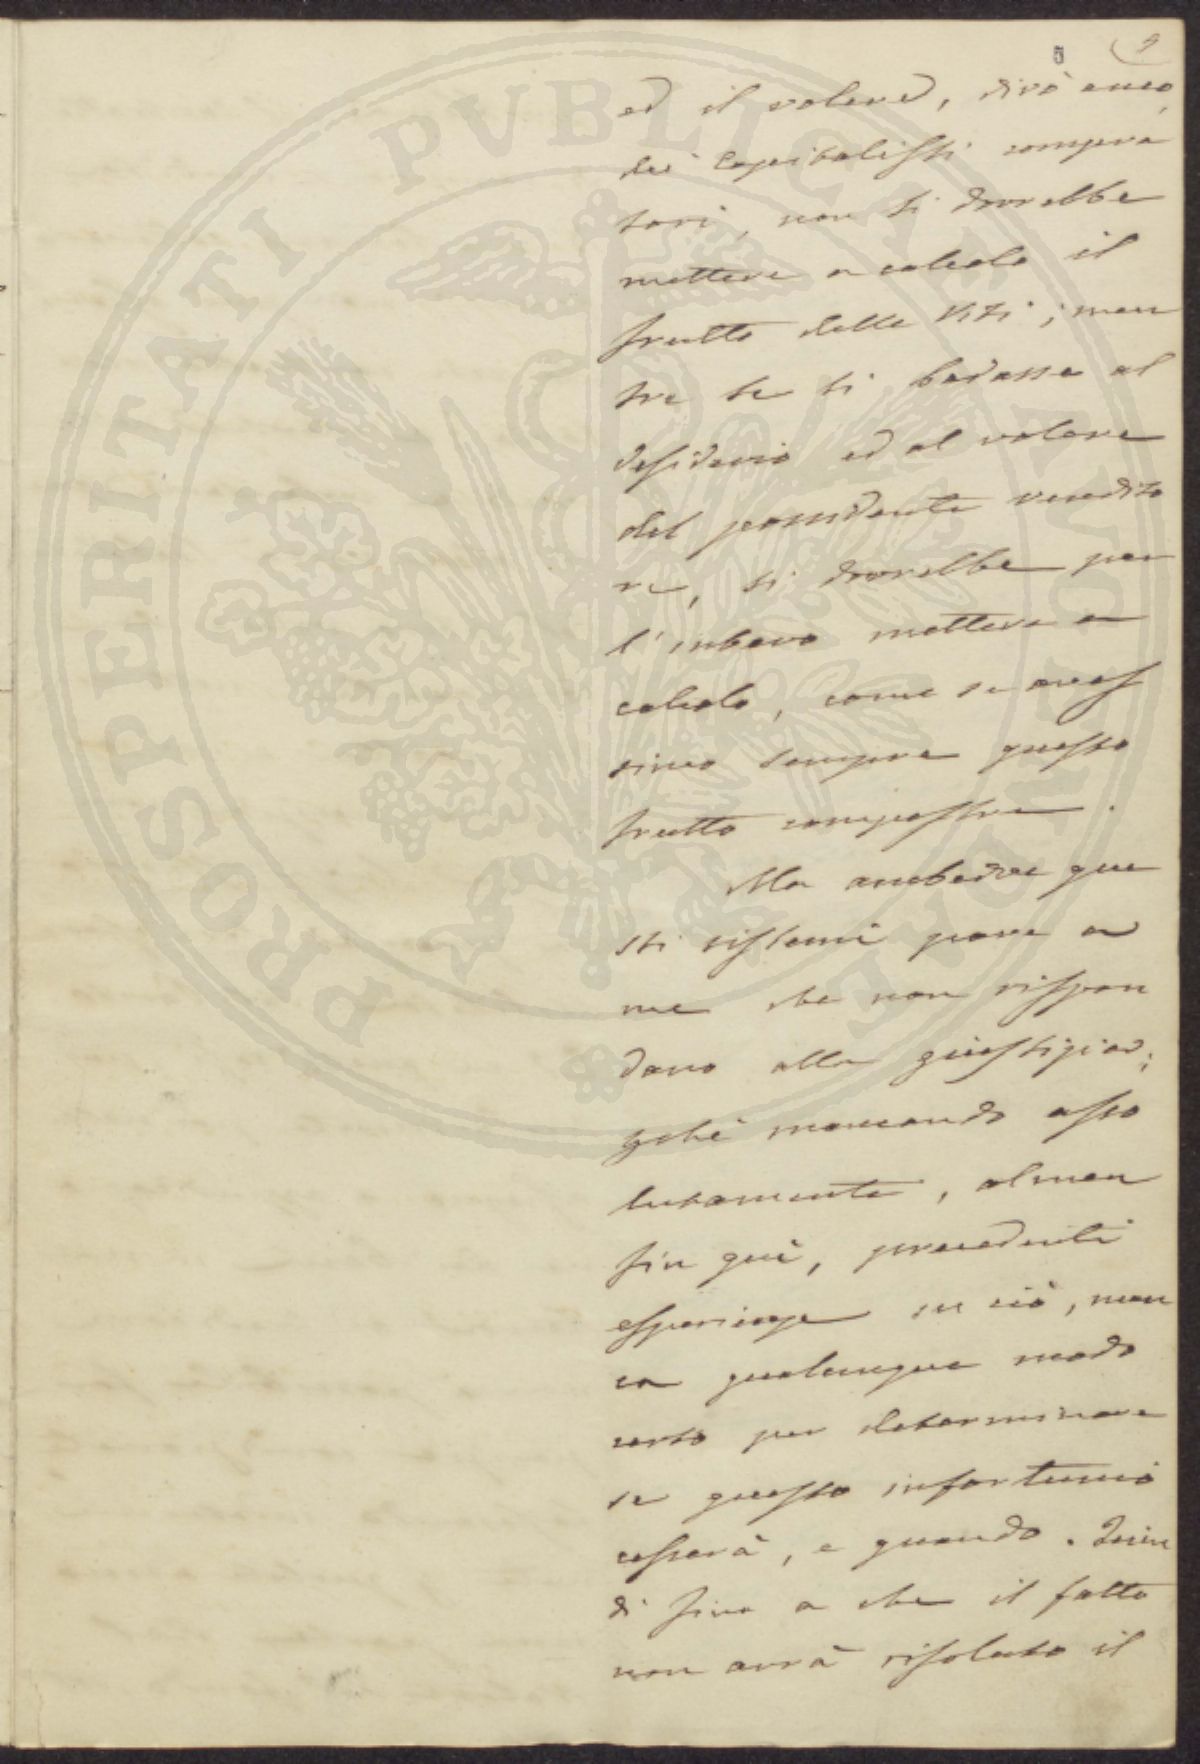 5 9
ed il volere, dirò anco,
dei Capitalisti compra
tori, non si dovrebbe
mettere a calcolo il
frutto delle viti; men
tre se si badasse al
desiderio ed al volere
del possidente vendito
re, si dovrebbe per
l'intero mettere a
calcolo, come se aves
simo sempre questo
frutto campestre.
Ma ambedue que
sti sistemi pare a
me che non rispon
dano alla giustizia;
gchè mancando asso
lutamente, almen
fin quì, precedenti
esperienze su ciò, man
ca qualunque modo
certo per determinare
se questo infortunio
cesserà, e quando. Quin
di fino a che il fatto
non avrà risoluto il
PROSPERITATI PVBLICAE AVGENDAE